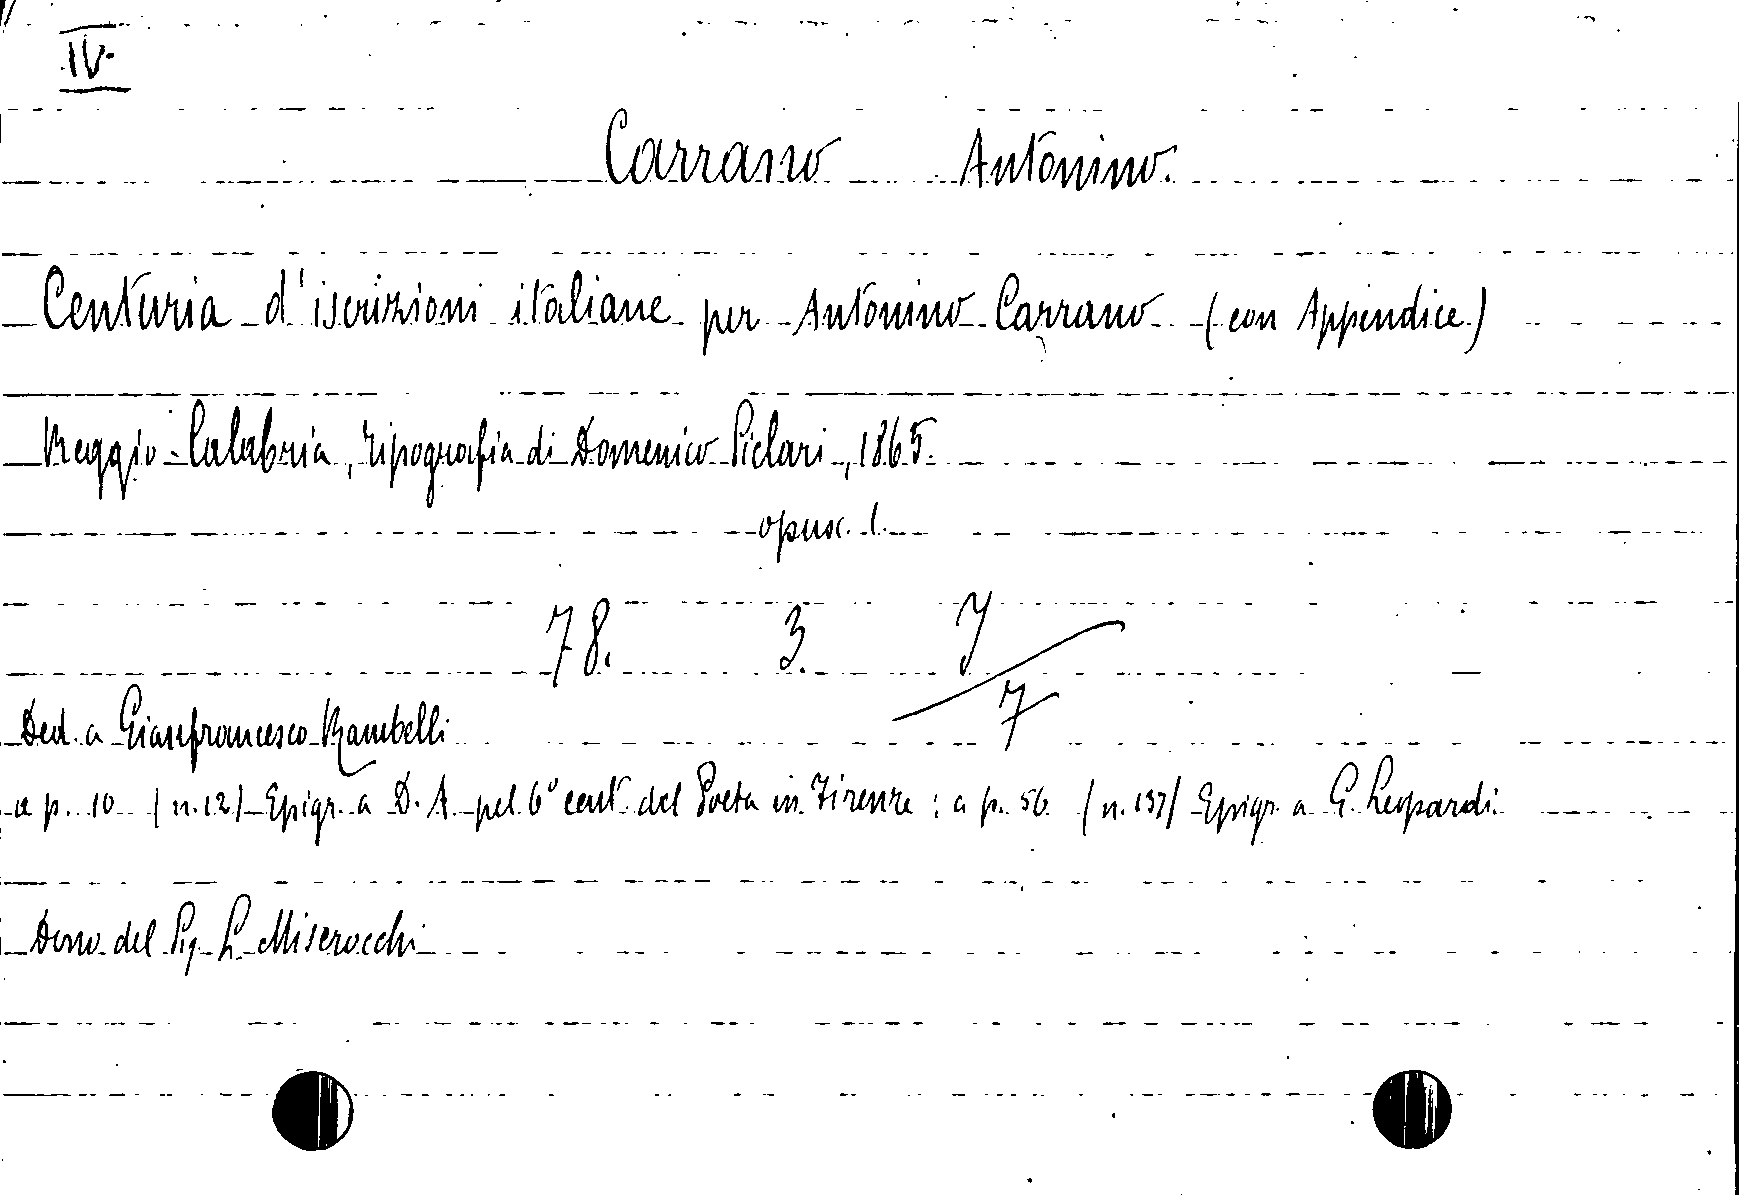 IV.
Carrano Antonino.
Centuria d'iscrizioni italiane per Antonino Carrano (con Appendice)
Reggio-Calabria, Tipografia di Domenico Siclari, 1865.
opusc. 1.
78. 3. Y
7
Ded. a Gianfrancesco Rambelli
a p. 10 (n. 12) Epigr. a D. A. pel 6° cent. del Poeta in Firenze; a p. 56 (n. 137) Epigr. a G. Leopardi.
Dono del Sig. L. Miserocchi